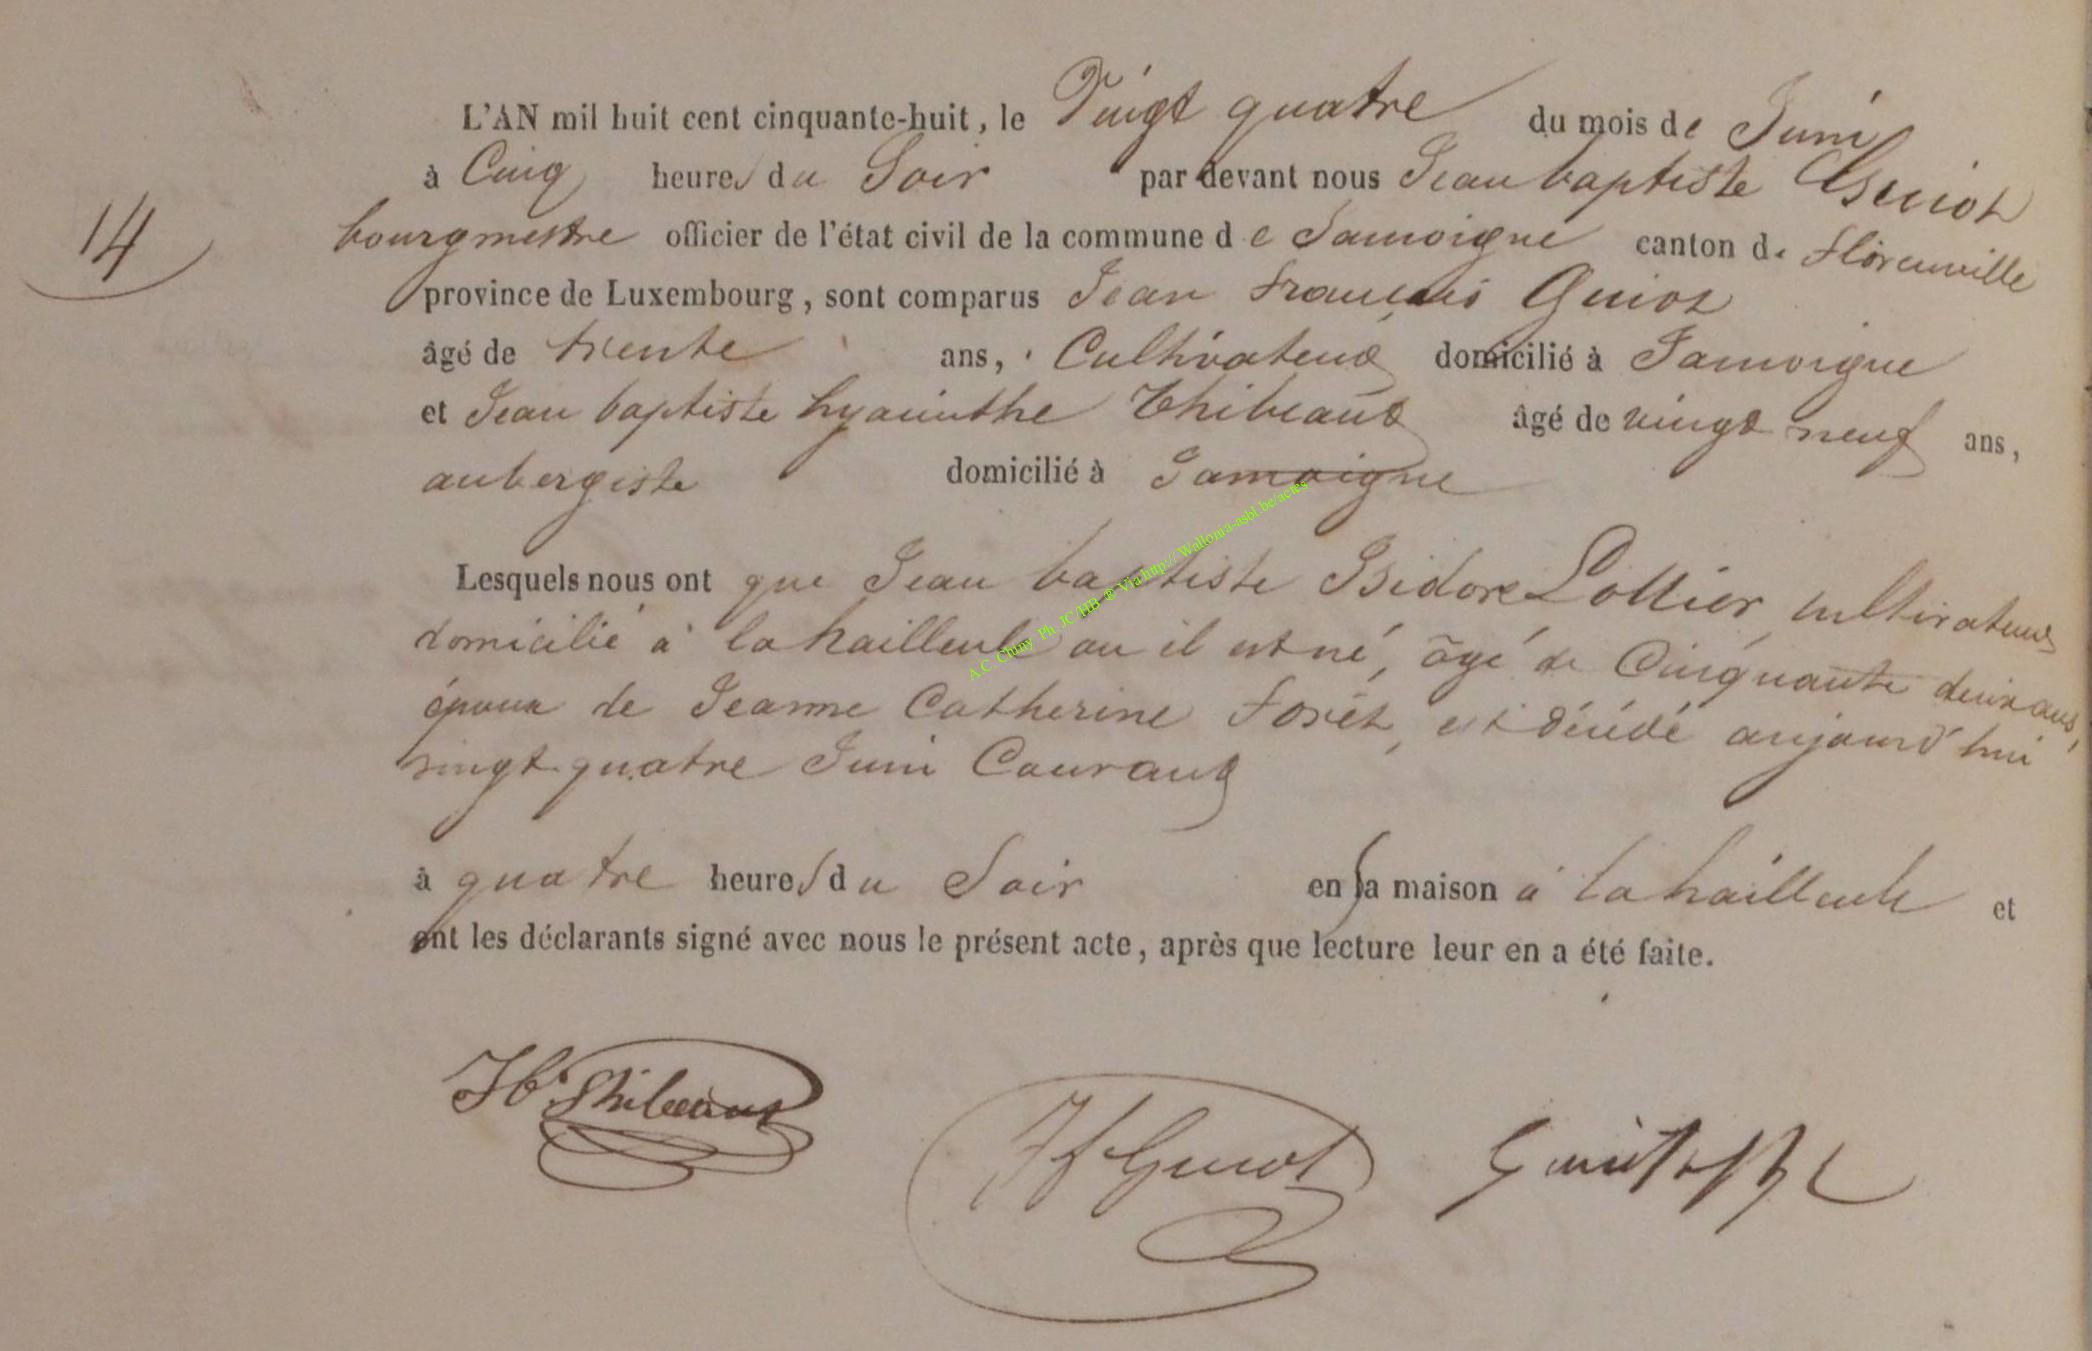 L'AN mil huit cent cinquante-huit, le Vingt quatre du mois de Juin
à Cinq heures du Soir par devant nous Jean baptiste Guiot
14
bourgmestre officier de l'état civil de la commune de Jamoigne canton de florenville
province de Luxembourg, sont comparus Jean françois Guiot
âgé de trente ans, Cultivateur domicilié à Jamoigne
et Jean baptiste hyacinthe Thibeaut âgé de vingt neuf ans,
aubergiste domicilié à Jamoigne
Lesquels nous ont que Jean baptiste Isidore Lottier cultivateur
domicilié à lahailleule ou il est né, âgé de Cinquante deux ans,
époux de Jeanne Catherine forêt, est décédé aujourd'hui
vingt-quatre Juin Courant
à quatre heures du Soir en sa maison à lahailleule et
ont les déclarants signé avec nous le présent acte, après que lecture leur en a été faite.
Thibeaut
Jf Guiot
A.C. Chiny Ph JC/HB ® Via http://Wallonia-asbl.be/actes